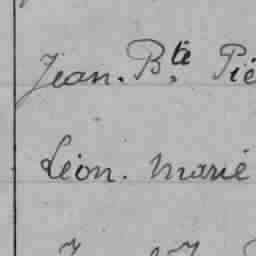 Jean. Bte Pié
Léon. Marie